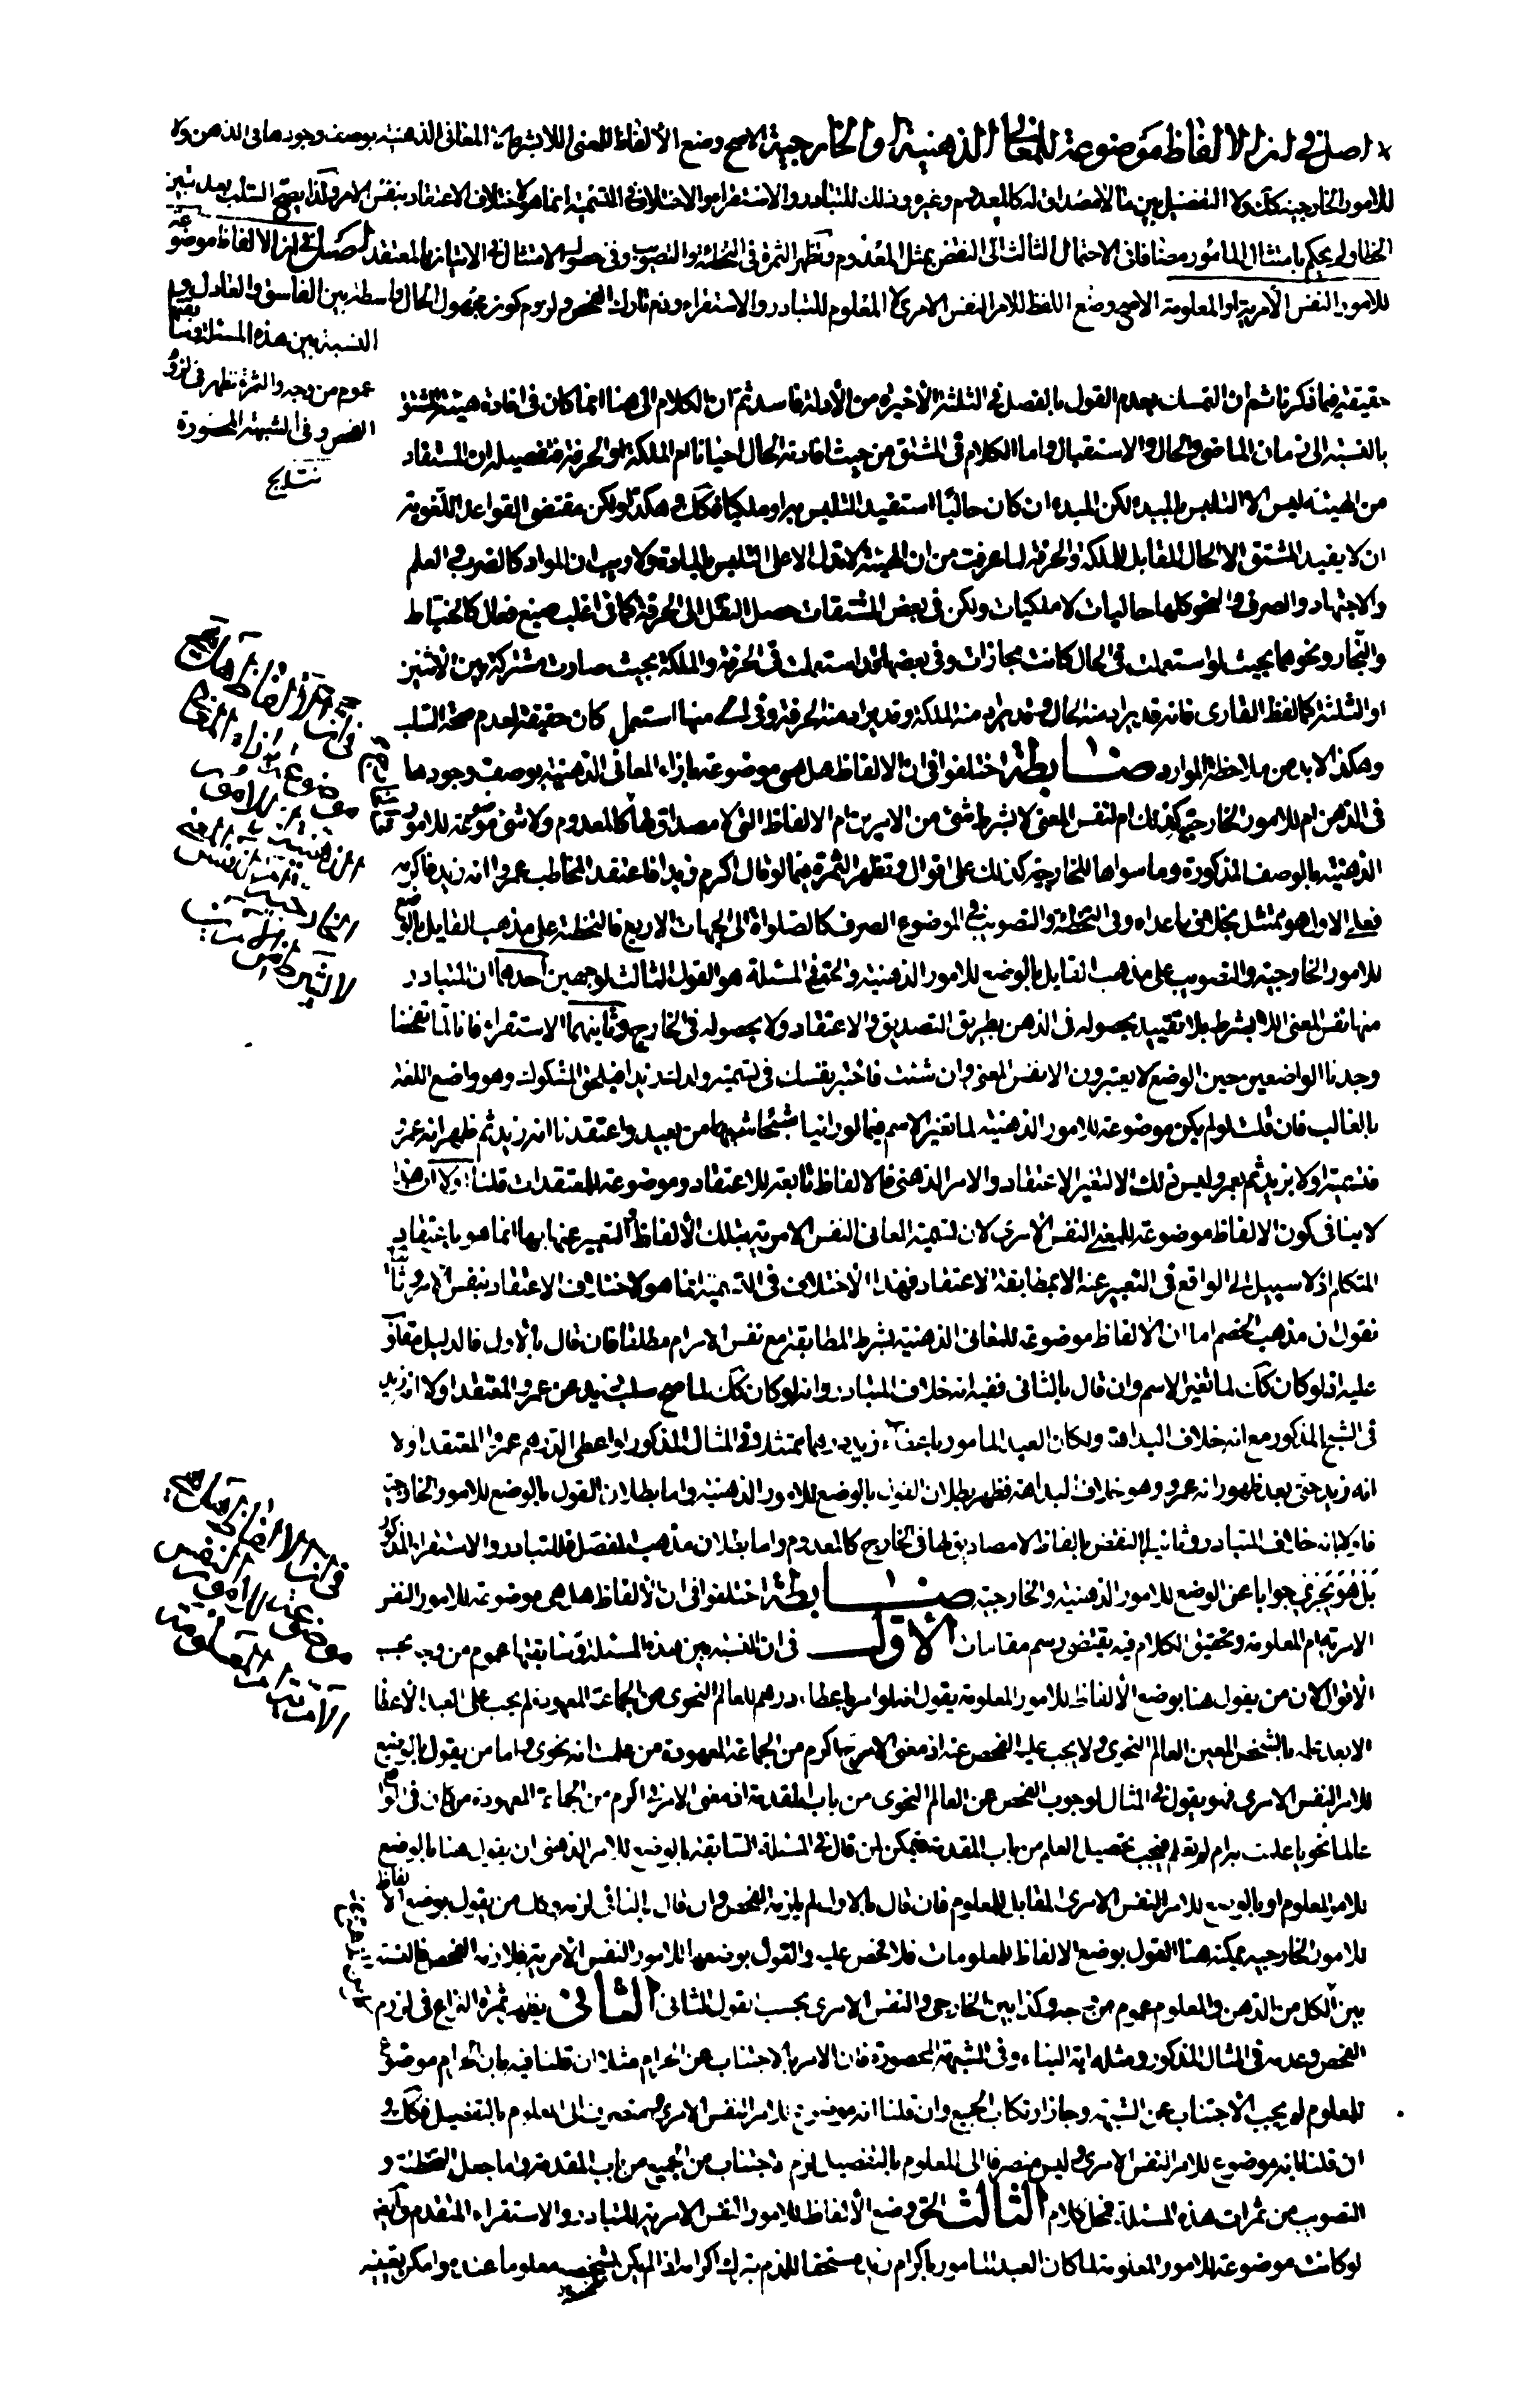 اصل في ان الالفاظ موضوعة للمعاني الذهنية او الخارجية الاصح وضع الالفاظ للمعنى اللابشرط لا المعانى الذهنية بوصف وجودها فى الذهن ولا
للامور الخارجية كك ولا التفصيل بين ما لا مصداق له كالمعدوم وغيره وذلك للتبادر والاستقراء والاختلاف فى التسمية انما هو لاختلاف الاعتقاد بنفس الامر ولذا يصح السلب بعد تبين
الخطاء ولم يحكم بامتثال المامور مضافا فى الاحتمال الثالث الى النقض بمثل المعدوم وتظهر الثمرة فى التخطئة والتصويب وفى حصول الامتثال فى الاتيان بالمعتقد اصل فى ان الالفاظ موضوعة
للامور النفس الأمرية او المعلومة الاصح وضع اللفظ للامر النفس الامرى لا المعلوم للتبادر والاستقراء وذم تارك الفحص ولزوم كون مجهول الحال واسطة بين الفاسق والعادل
النسبة بين هذه المسئلة وسابقتها
عموم من وجه والثمرة تظهر فى لزوم
الفحص وفى الشبهة المحصورة
حقيقة فيما ذكرنا ثم ان التمسك بعدم القول بالفصل فى الثلثة الأخيرة من الأدلة فاسد ثم ان الكلام الى هنا انما كان فى افادة هيئة المشتق
بالنسبة الى زمان الماضى والحال والاستقبال واما الكلام فى المشتق من حيث افادته الحال احيانا ام الملكة او الحرفة فتفصيله ان المستفاد
من الهيئة ليس الا التلبس بالمبدء لكن المبدء ان كان حاليا استفيد التلبس به او ملكيا فكك وهكذا ولكن مقتضى القواعد اللغوية
ان لا يفيد المشتق الا الحال المقابل للملكة والحرفة لما عرفت من ان الهيئة لا تدل الا على التلبس بالمادة ولا ريب ان المواد كالضرب والعلم
والاجتهاد والصرف والنحو كلها حاليات لا ملكيات ولكن فى بعض المشتقات حصل النقل الى الحرفة كما فى اغلب صيغ فعال كالخياط
والنجار ونحوهما بحيث لو استعملت فى الحال كانت مجازات وفى بعضها قد استعملت فى الحرفة والملكة بحيث صارت مشتركة بين الاثنين
او الثلثة كلفظ القارى فانه قد يراد منه الحال وقد يراد منه الملكة وقد يراد منه الحرفة وفى اى منها استعمل كان حقيقة لعدم صحة السلب
وهكذا لا بد من ملاحظة الموارد ضابطة اختلفوا فى ان الالفاظ هل هى موضوعة بازاء المعانى الذهنية بوصف وجودها
فى الذهن ام للامور الخارجية كذلك ام لنفس المعنى لا بشرط شئ من الامرين ام الالفاظ التى لا مصداق لها كالمعدوم ولا شئ موضوعة للامور
الذهنية بالوصف المذكورة وما سواها للخارجية كذلك على اقوال وتظهر الثمرة فيما لو قال اكرم زيدا فاعتقد المخاطب عمروا انه زيد فاكرمه
فعلى الاول هو ممتثل بخلاف ما عداه وفى التخطئة والتصويب فى الموضوع الصرف كالصلواة الى الجهات الاربع فالتخطئة على مذهب القايل بالوضع
للامور الخارجية والتصويب على مذهب القايل بالوضع للامور الذهنية والحق فى المسئلة هو القول الثالث لوجهين احدهما ان المتبادر
منها نفس المعنى اللا بشرط بلا تقييد بحصوله فى الذهن بطريق التصديق والاعتقاد ولا بحصوله فى الخارج وثانيهما الاستقراء فانا لما تفحصنا
وجدنا الواضعين حين الوضع لا يعتبرون الا نفس المعنى وان شئت فاختبر نفسك فى تسمية ولدك زيدا فيلحق المشكوك وهو واضع اللغة
بالغالب فان قلت لو لم يكن موضوعة للامور الذهنية لما تغير الاسم فيما لو راينا شبحا من بعيد واعتقدنا انه زيد ثم ظهر انه عمرو
فنسميه اولا بزيد ثم بعمرو وليس ذلك الا لتغير الاعتقاد والامر الذهنى فالالفاظ تابعة للاعتقاد وموضوعة للمعتقدات قلنا اولا ان هذا
لا ينافى كون الالفاظ موضوعة للمعنى النفس الأمرى لان تسمية المعانى النفس الامرية بتلك الألفاظ والتعبير عنها بها انما هو باعتقاد
المتكلم اذ لا سبيل الى الواقع فى التعبير عنه الا بمطابقة الاعتقاد فهذا الأختلاف فى التسمية انما هو لاختلاف الاعتقاد بنفس الامر وثانيا
نقول ان مذهب الخصم اما ان الالفاظ موضوعة للمعانى الذهنية بشرط المطابقة مع نفس الامر ام مطلقا فان قال بالأول فالدليل مقلوب
عليه اذ لو كان كك لما تغير الاسم وان قال بالثانى ففيه انه خلاف المتبادر وانه لو كان كك لما صح سلب زيد عن عمرو المعتقد اولا انه زيد
فى الشبح المذكور مع انه خلاف البداهة ولكان العبد المامور باعطاء زيد درهما ممتثلا فى المثال المذكور لو اعطى الدرهم عمروا المعتقد اولا
انه زيد حتى بعد ظهور انه عمرو وهو خلاف البداهة فظهر بطلان القول بالوضع للامور الذهنية واما بطلان القول بالوضع للامور الخارجية
فاولا بانه خلاف المتبادر وثانيا بالنقض بالفاظ لا مصاديق لها فى الخارج كالمعدوم واما بطلان مذهب المفصل فللتبادر والاستقراء المذكور
ضابطة اختلفوا فى ان الألفاظ هل هى موضوعة للامور النفس
الامرية ام المعلومة وتحقيق الكلام فيه يقتضى رسم مقامات الأول فى ان النسبة بين هذه المسئلة وسابقتها عموم من وجه بحسب
الأقوال لان من يقول هنا بوضع الألفاظ للامور المعلومة يقول فيما لو امر باعطاء درهم للعالم النحوى من الجماعة المعهودة لم يجب على العبد الأعطاء
الا بعد علمه بالشخص المعين العالم النحوى ولا يجب عليه الفحص عنه اذ معنى الامر ح اكرم من الجماعة المعهودة من علمت انه نحوى واما من يقول بالوضع
للامر النفس الامرى فهو يقول فى المثال بوجوب الفحص عن العالم النحوى من باب المقدمة اذ معنى الامر ح اكرم من الجماعة المعهودة من كان فى الواقع
عالما نحويا علمت به ام لم تعلم فيجب تحصيل العلم من باب المقدمة فيمكن لمن قال فى المسئلة السابقة بالوضع للامر الذهنى ان يقول هنا بالوضع
للامر المعلوم او بالوضع للامر النفس الامرى المقابل للمعلوم فان قال بالاول لم يلزمه الفحص وان قال بالثانى لزمه وكل من يقول بوضع الالفاظ
للامور الخارجية يمكنه هنا القول بوضع الالفاظ للمعلومات فلا فحص عليه والقول بوضعها للامور النفس الأمرية فلازمه الفحص فالنسبة
بين الكل من الذهن والمعلوم عموم من وجه وكذا بين الخارجى والنفس الامرى بحسب القول الثانى الثانى يظهر ثمرة النزاع فى لزوم
الفحص وعدمه فى المثال المذكور ومثله اية النباء وفى الشبهة المحصورة فان الامر بالاجتناب عن الحرام مثلا ان قلنا فيه بان الحرام موضوع
للمعلوم لم يجب الأجتناب عن الشبهة وجاز ارتكاب الجميع وان قلنا انه موضوع للامر النفس الامرى ومنصرف الى المعلوم بالتفصيل فكك و
ان قلنا بانه موضوع للامر النفس الامرى وليس منصرفا الى المعلوم بالتفصيل لزم الاجتناب من الجميع من باب المقدمة واما جعل التخطئة و
التصويب من ثمرات هذه المسئلة فمحل كلام الثالث الحق وضع الألفاظ للامور النفس الامرية للتبادر والاستقراء المتقدم ولانه
لو كانت موضوعة للامور المعلومة لما كان العبد المامور باكرام زيد مستحقا للذم بترك اكرامه اذا لم يكن لشخصه معلوما عنده وامكن تعيينه